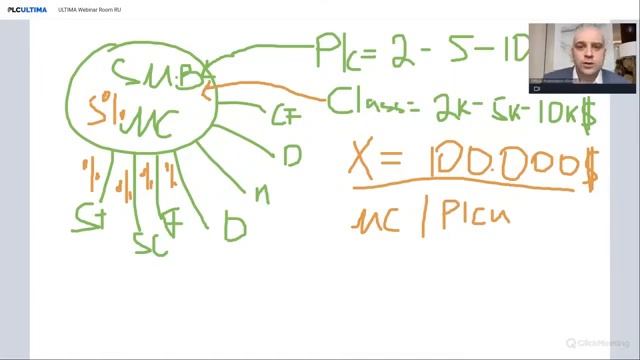 PLCULTIMA ULTIMA Webinar Room RU
Plc = 2 - 5 - 10
S.U.B
Class = 2k - 5k - 10k $
5% MC
CF
X = 100.000 $
D
% % % %
St
SC
F
D
n
MC / Plcu
ClickMeeting